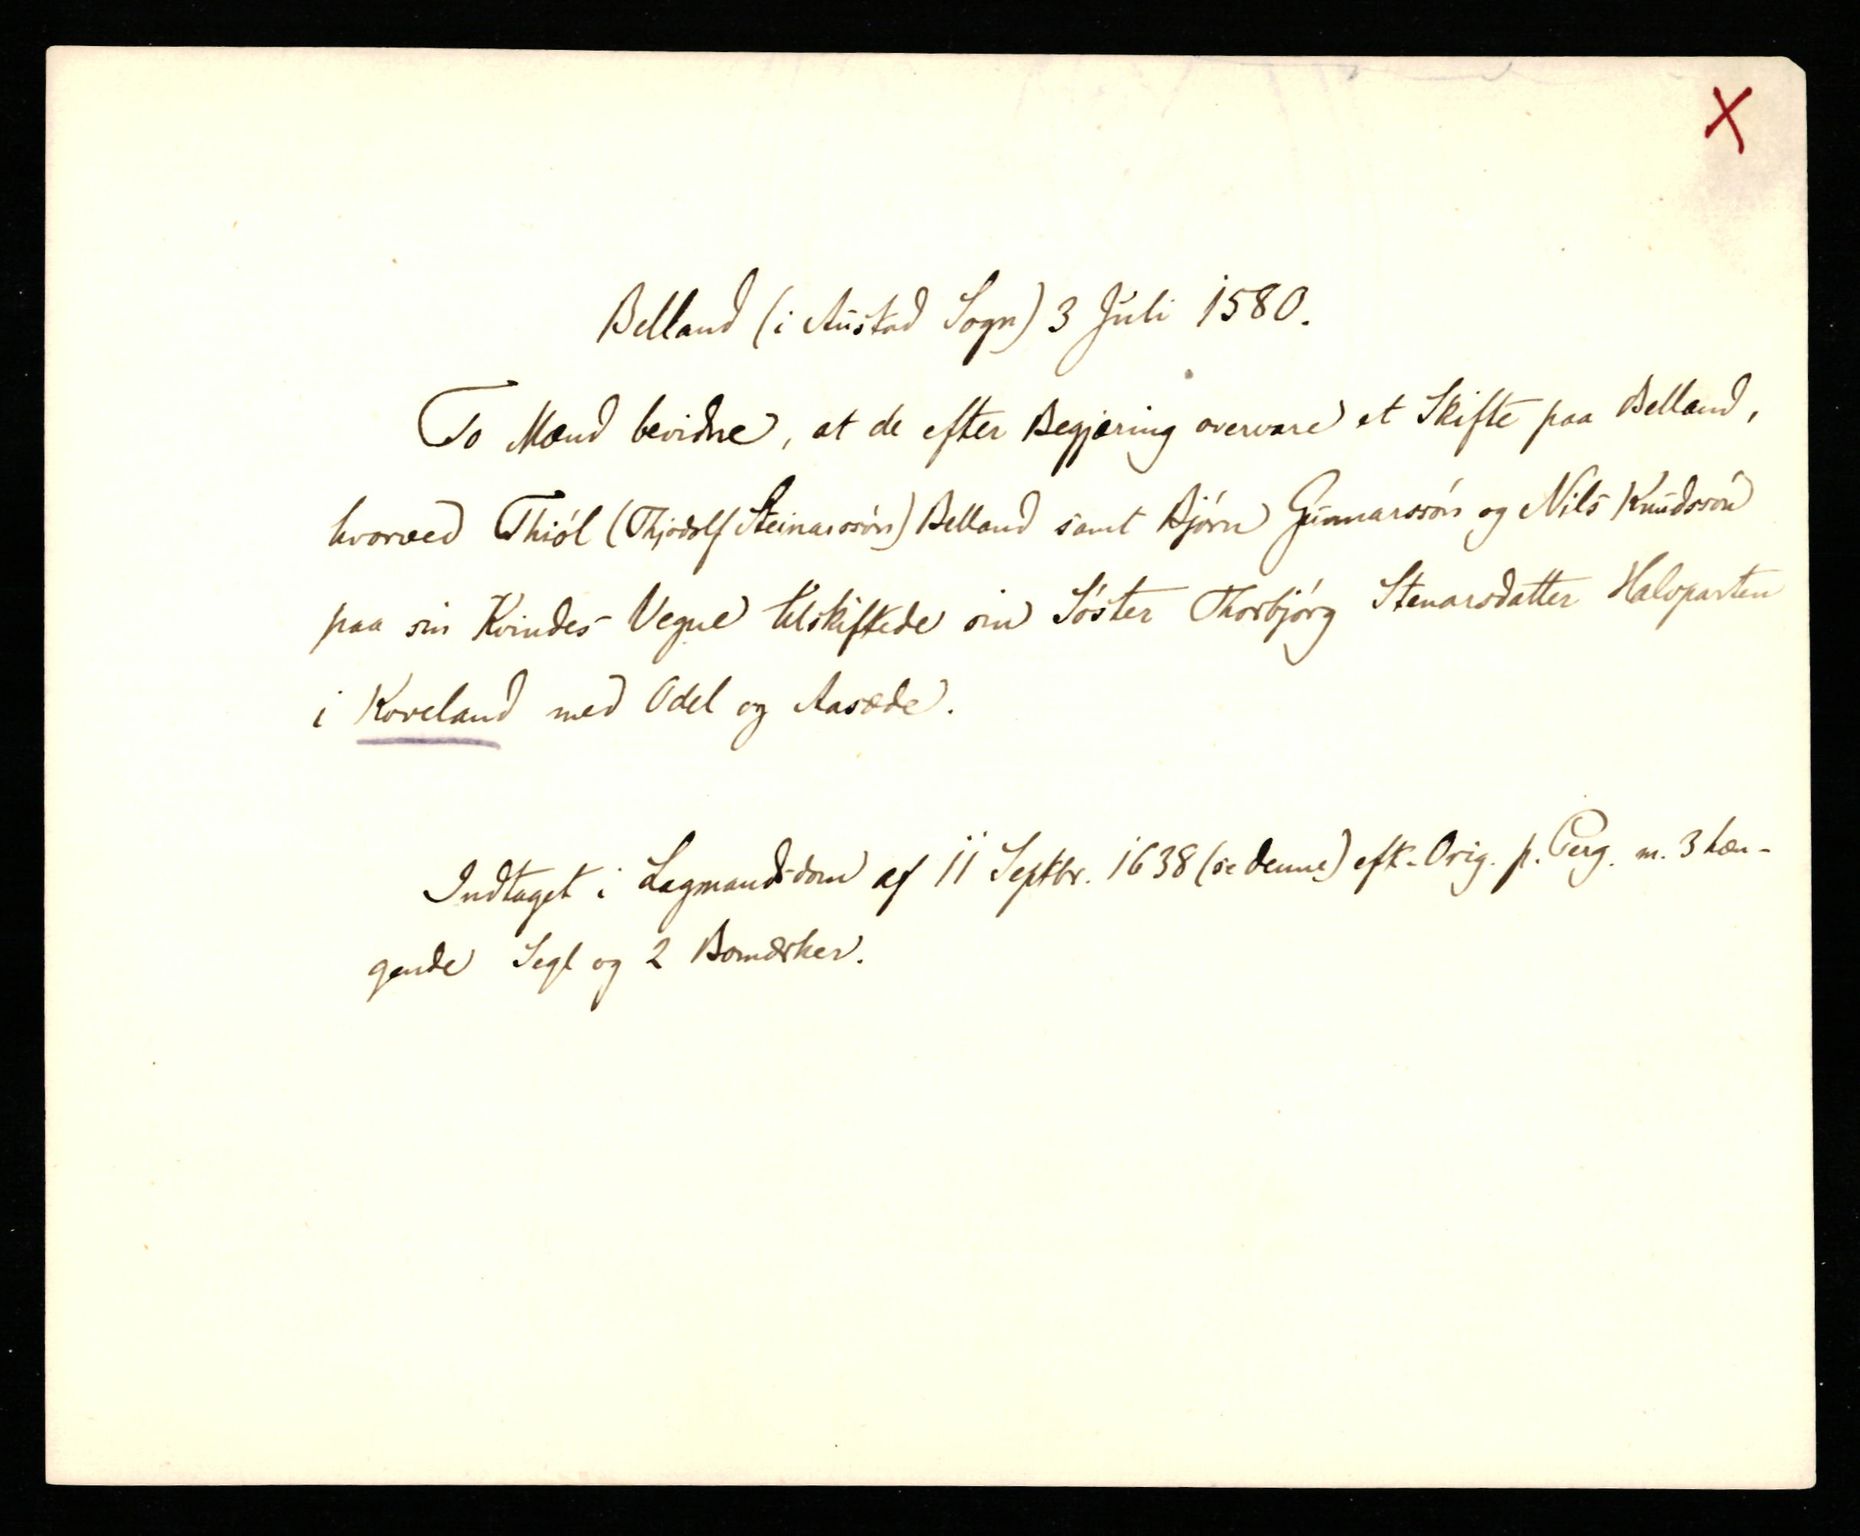 X
Belland (i Austad Sogn) 3 Juli 1580.
To Mænd bevidne, at de efter Begjæring overvare et Skifte paa Belland,
hvorved Thiól (Thjodolf Steinarssón) Belland samt Bjórn Gunnarssón og Nils Knudssón
paa sin Kvindes Vegne tilskiftede sin Sóster Thorbjórg Stenarsdatter Halvparten
i Koveland med Odel og Aasæde.
Indtaget i Lagmandsdom af 11 Septbr. 1638 (se denne) eft. Orig. p. Perg. m. 3 hæn-
gende Segl og 2 Bomærker.